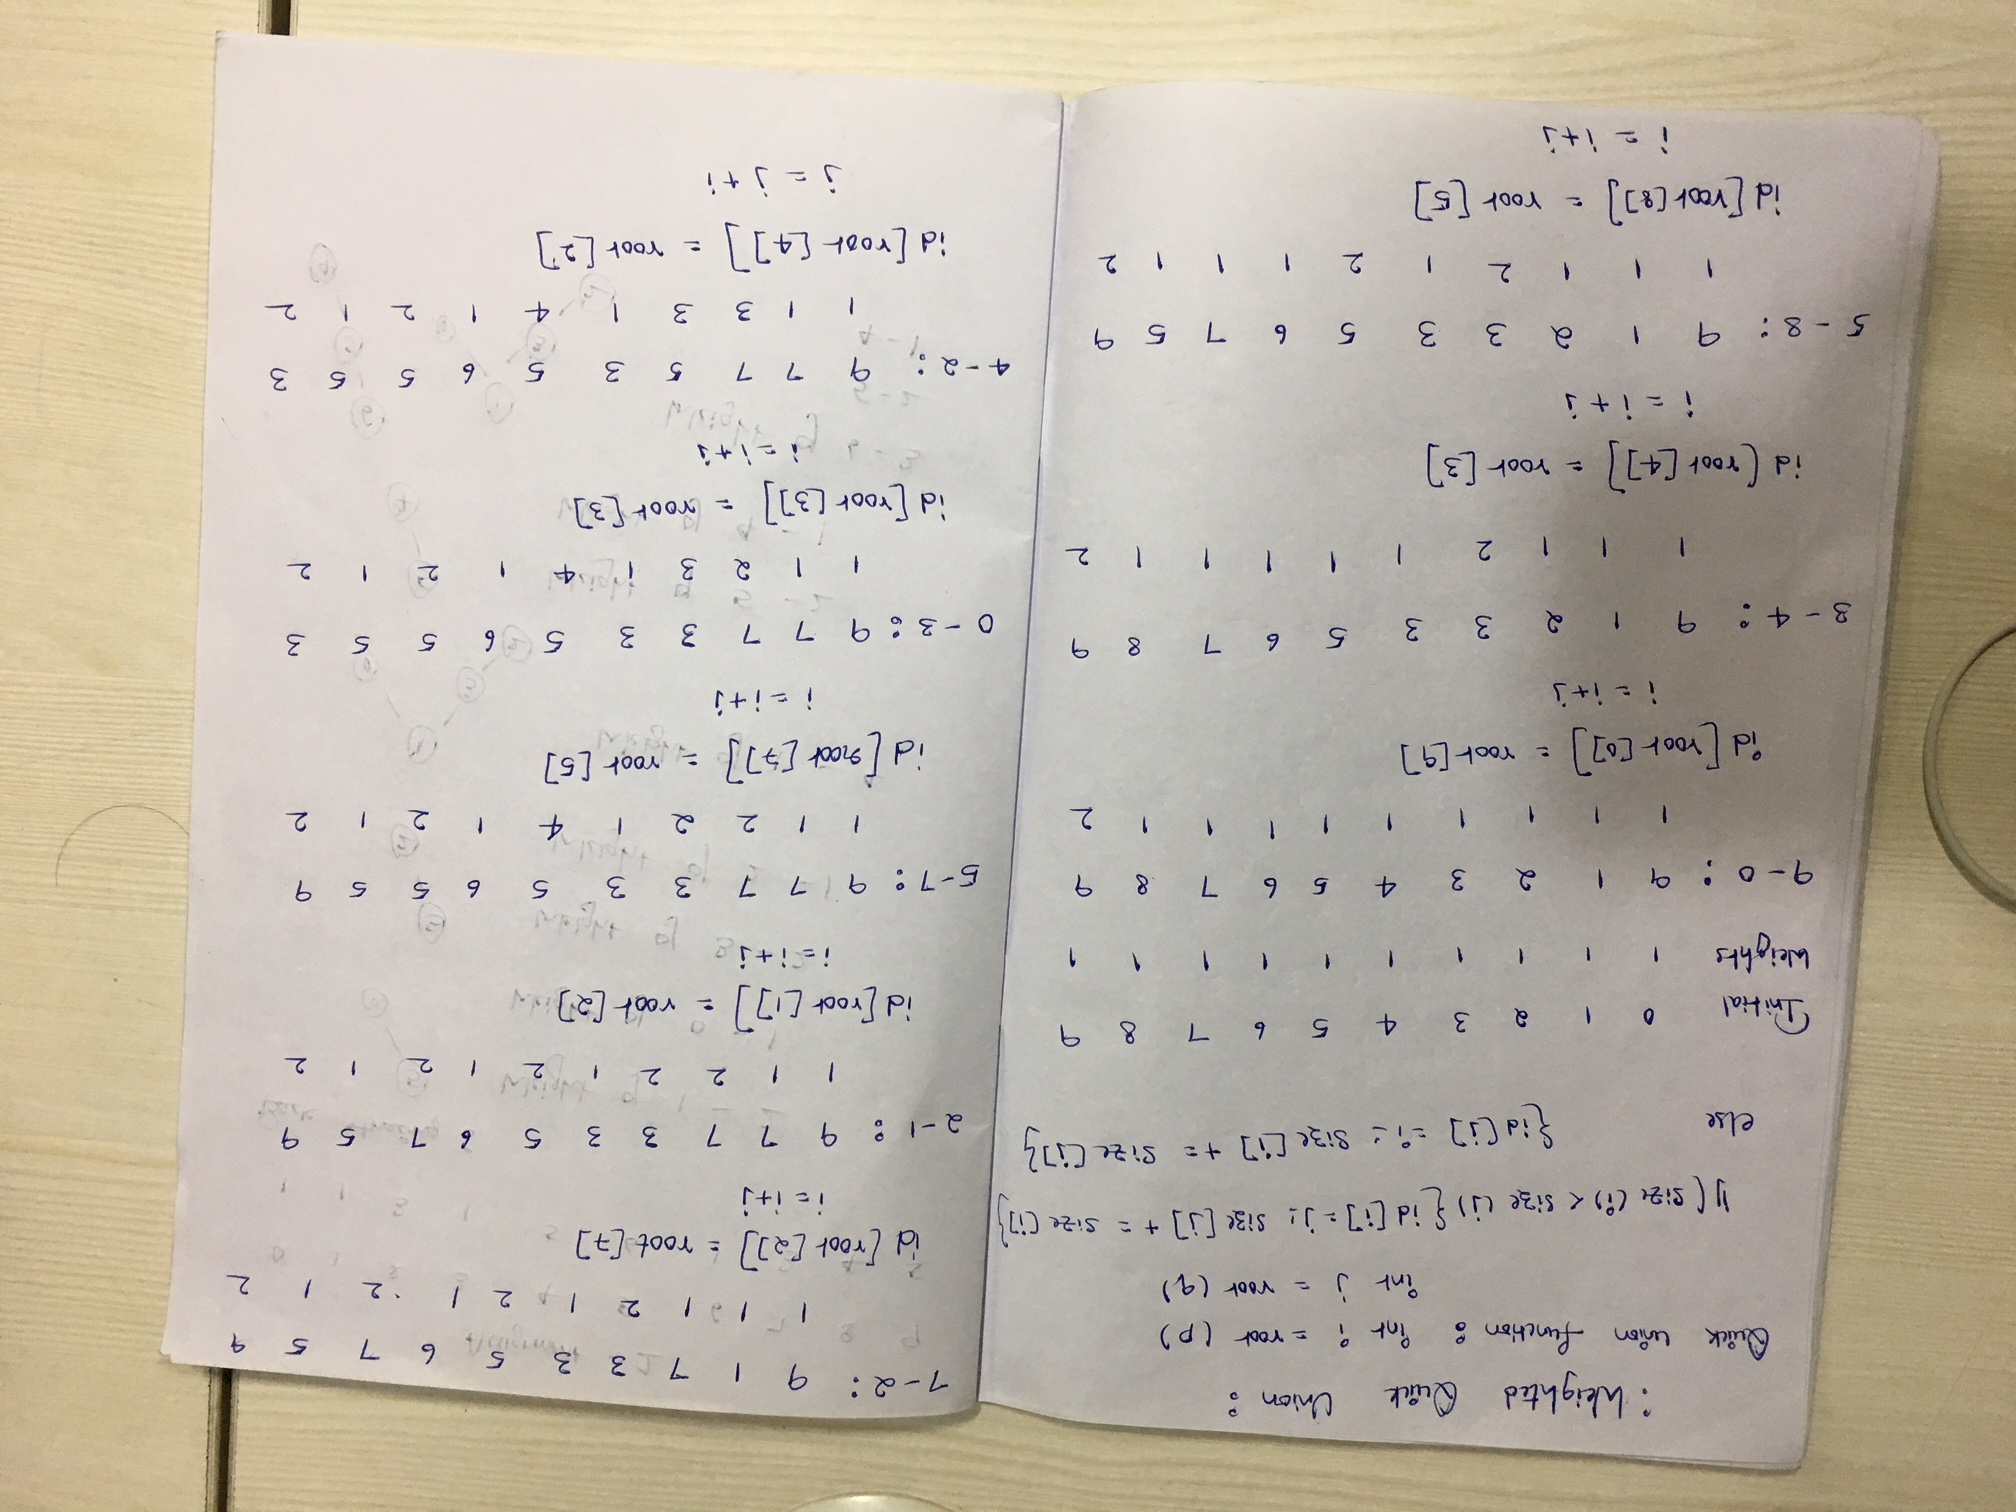 : Weighted Quick Union :
Quick union function : int i = root (p)
int j = root (q)
if (size (i) < size (j) { id [i] = j; size [j] += size [i] }
else { id [j] = i; size [i] += size [j] }
Initial 0 1 2 3 4 5 6 7 8 9
Weights 1 1 1 1 1 1 1 1 1 1
9-0 : 9 1 2 3 4 5 6 7 8 9
1 1 1 1 1 1 1 1 1 2
id [root [0]] = root [9]
i = i+j
3-4 : 9 1 2 3 3 5 6 7 8 9
1 1 1 2 1 1 1 1 1 2
id [root [4]] = root [3]
i = i + j
5-8 : 9 1 2 3 3 5 6 7 5 9
1 1 1 2 1 2 1 1 1 2
id [root [8]] = root [5]
i = i+j
7-2 : 9 1 7 3 3 5 6 7 5 9
1 1 1 2 1 2 1 2 1 2
id [root [2]] = root [7]
i = i+j
2-1 : 9 7 7 3 3 5 6 7 5 9
1 1 2 2 1 2 1 2 1 2
id [root [1]] = root [2]
i = i+j
5-7 : 9 7 7 3 3 5 6 5 5 9
1 1 2 2 1 4 1 2 1 2
id [root [7]] = root [5]
i = i+j
0-3 : 9 7 7 3 3 5 6 5 5 3
1 1 2 3 1 4 1 2 1 2
id [root [3]] = root [3]
i = i+j
4-2 : 9 7 7 5 3 5 6 5 5 3
1 1 3 3 1 4 1 2 1 2
id [root [4]] = root [2]
j = j+i